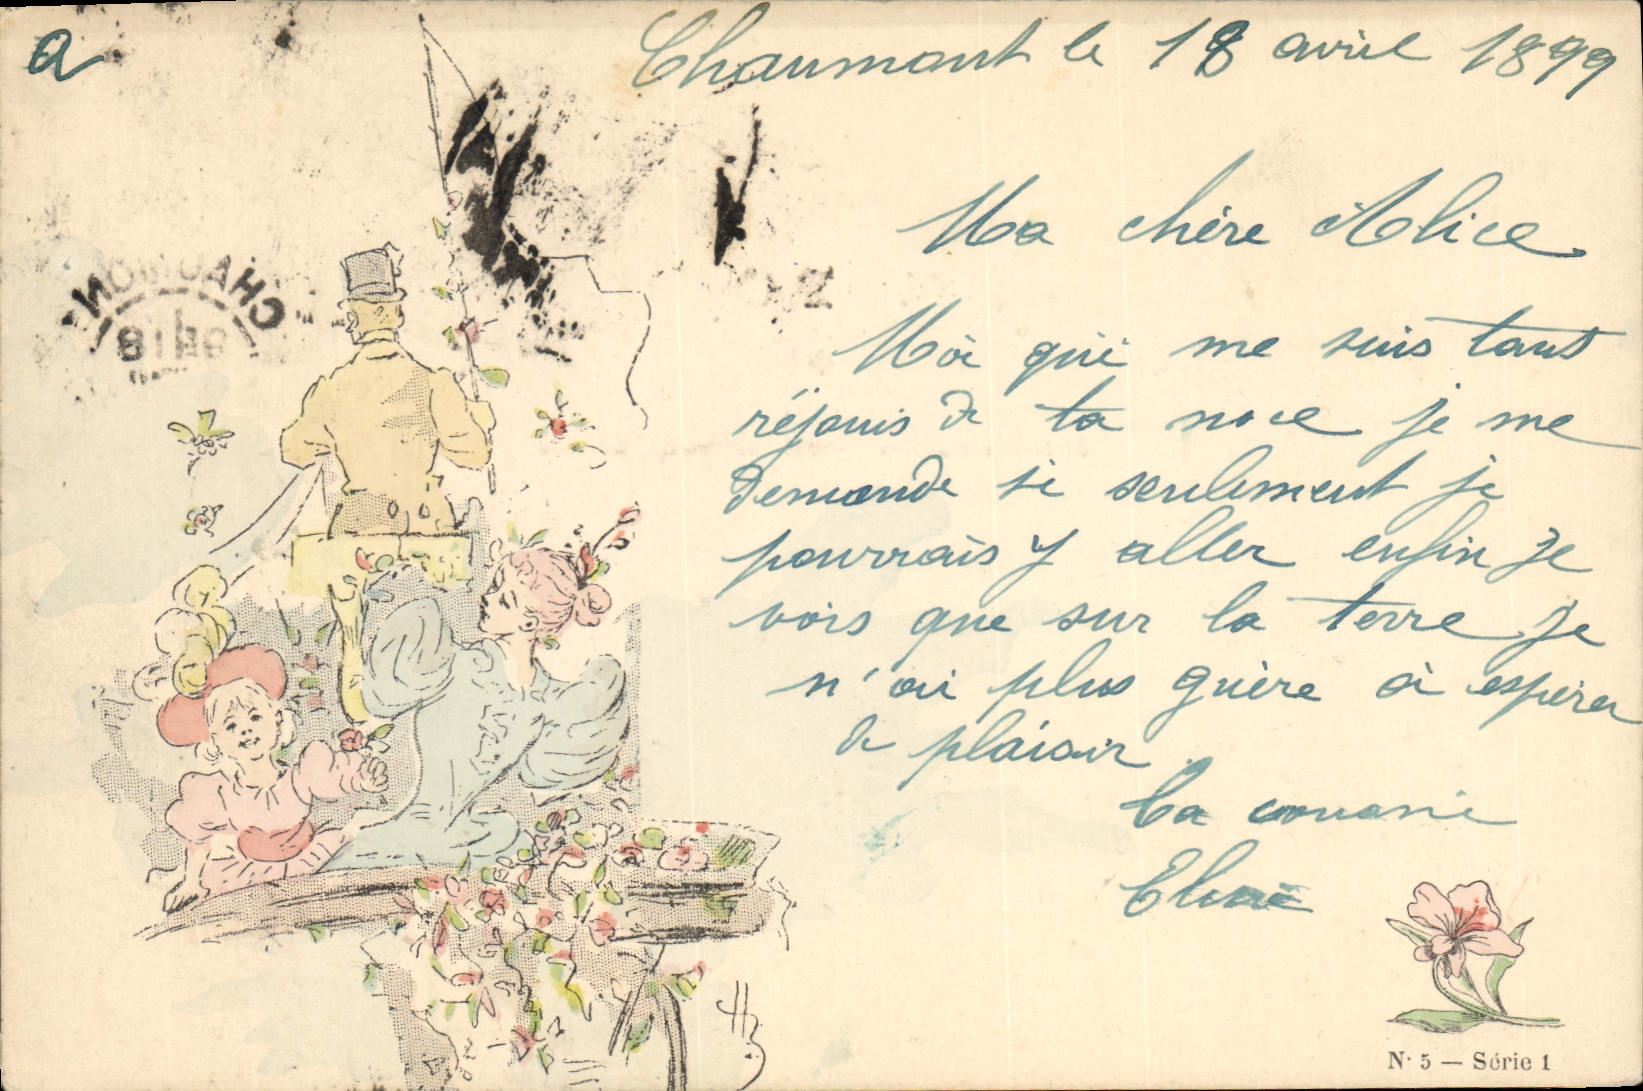 a
Chaumont le 18 avril 1899
Ma chère Alice
Moi qui me suis tant
réjouis de ta noce je me
demande si seulement je
pourrais y aller enfin je
vois que sur la terre je
n'ai plus guère à espérer
de plaisir
Ta cousine
CHAUMONT
N° 5 — Série 1